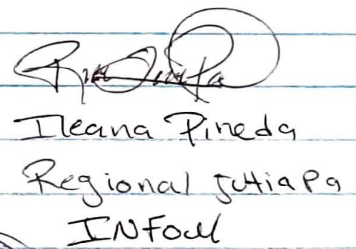 Ileana Pineda
Regional Jutiapa
INFOM